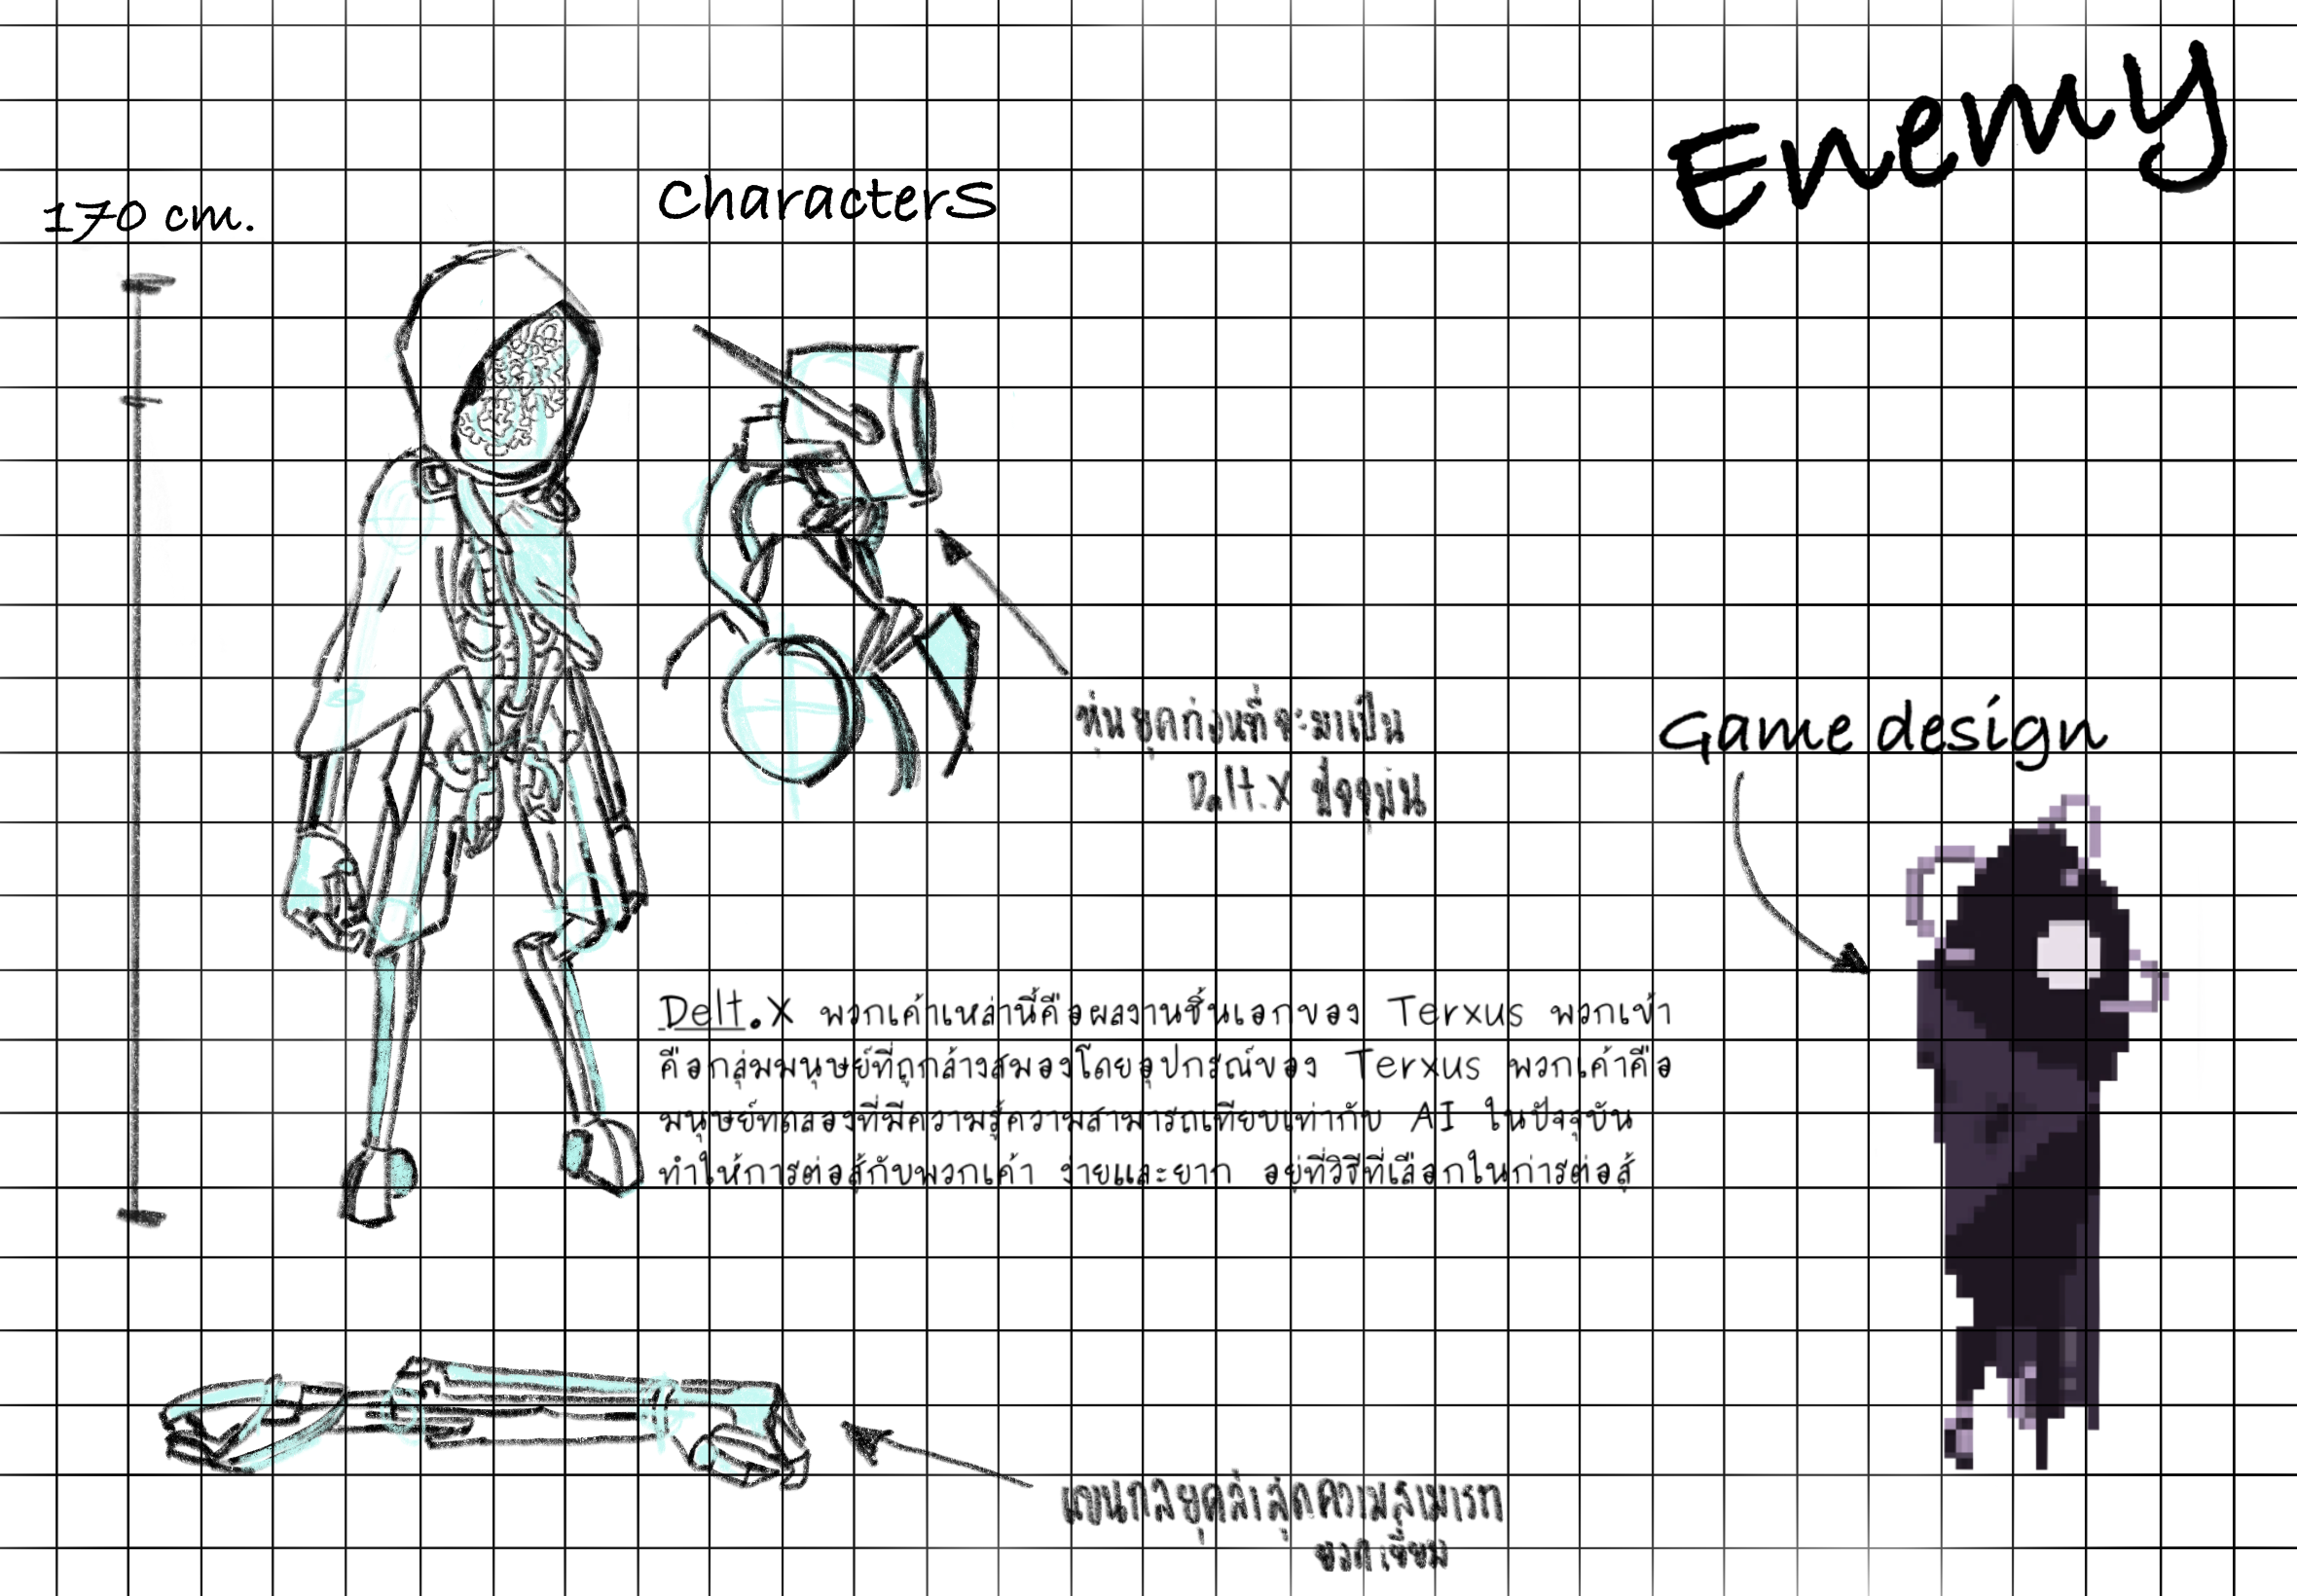 Enemy
Characters
170 cm.
หุ่นยุคก่อนที่จะมาเป็น
Delt.X ปัจจุบัน
Game design
Delt.X พวกเค้าเหล่านี้คือผลงานชิ้นเอกของ Terxus พวกเข้า
คือกลุ่มมนุษย์ที่ถูกล้างสมองโดยอุปกรณ์ของ Terxus พวกเค้าคือ
มนุษย์ทดลองที่มีความรู้ความสามารถเทียบเท่ากับ AI ในปัจจุบัน
ทำให้การต่อสู้กับพวกเค้า ง่ายและยาก อยู่ที่วิธีที่เลือกในก่ารต่อสู้
แขนกลยุคล่าสุดความสามารถ
ยอดเยี่ยม